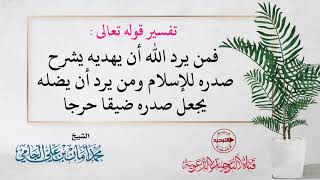 تفسير قوله تعالى :
فمن يرد الله أن يهديه يشرح
صدره للإسلام ومن يرد أن يضله
يجعل صدره ضيقا حرجا
الشيخ
محمد أمان بن علي الجامي
التوحيد
قناة التوحيد الدعوية